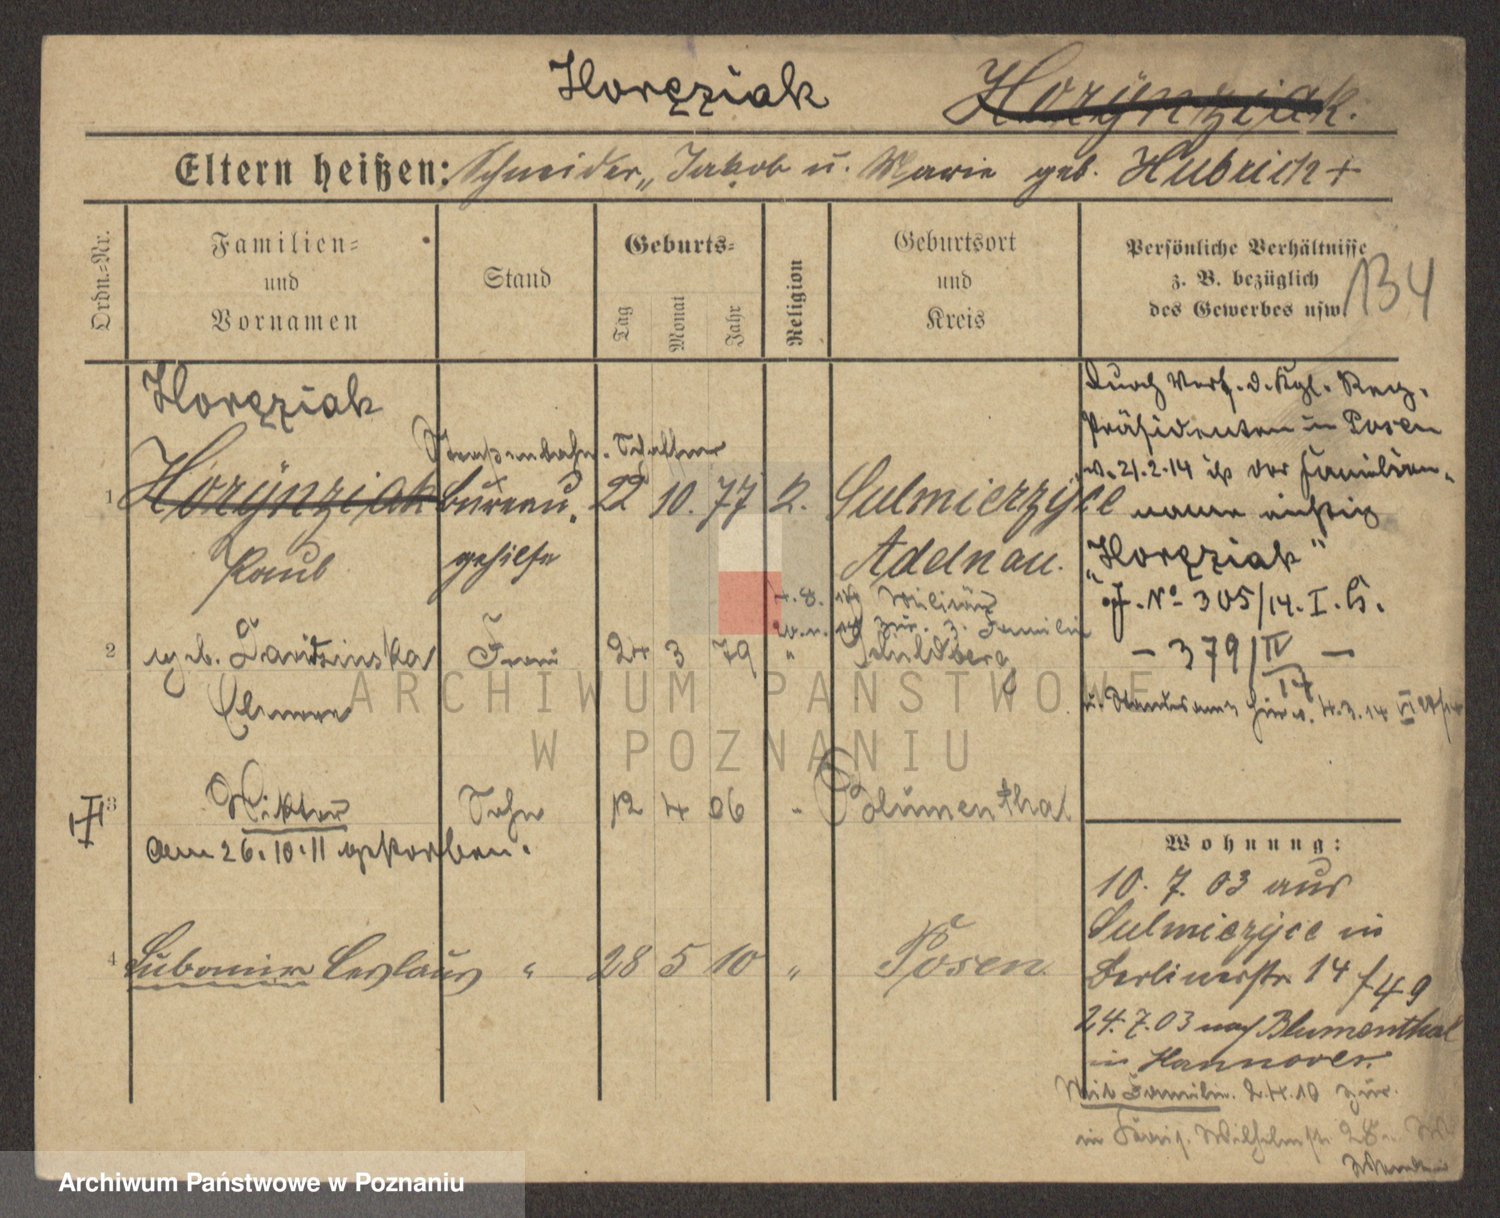 Horęziak Horÿnziak.
Eltern heißen: Schneider, Jakob u. Marie geb. Hubrich +
Ordn.=Nr.
Familien=
und
Vornamen
Stand
Geburts=
Tag
Monat
Jahr
Religion
Geburtsort
und
Kreis
Persönliche Verhältnisse
z. B. bezüglich
des Gewerbes usw.
134
Horęziak
Straßenbahn-Schaffner
1 Horÿnziak Bureau- 22 10. 77 k. Sulmierzÿce
Paul gehilfe Adelnau.
2 geb. Frau 24 3 79 " Schildberg
3 Wiktor Sohn 12 4 06 " Blumenthal
am 26.10.11 gestorben.
4 Lubomir Ceslaus " 28 5 10 " Posen
Durch Verf. d. Kgl. Reg.
Präsidenten in Posen
v. 21.2.14 ist der Familien-
name richtig
„Horęziak"
J. No 305/14. I. G.
- 379/IV 14 -
u. Standesamt hier v. 4.3.14
Wohnung:
10. 7. 03 aus
Sulmierzÿce in
Berlinerstr. 14
f 49
24.7.03 nach Blumenthal
in Hannover.
Mit Familie. 2.4.10 zur.
Wilhelmstr. 28
ARCHIWUM PAŃSTWOWE
W POZNANIU
Archiwum Państwowe w Poznaniu